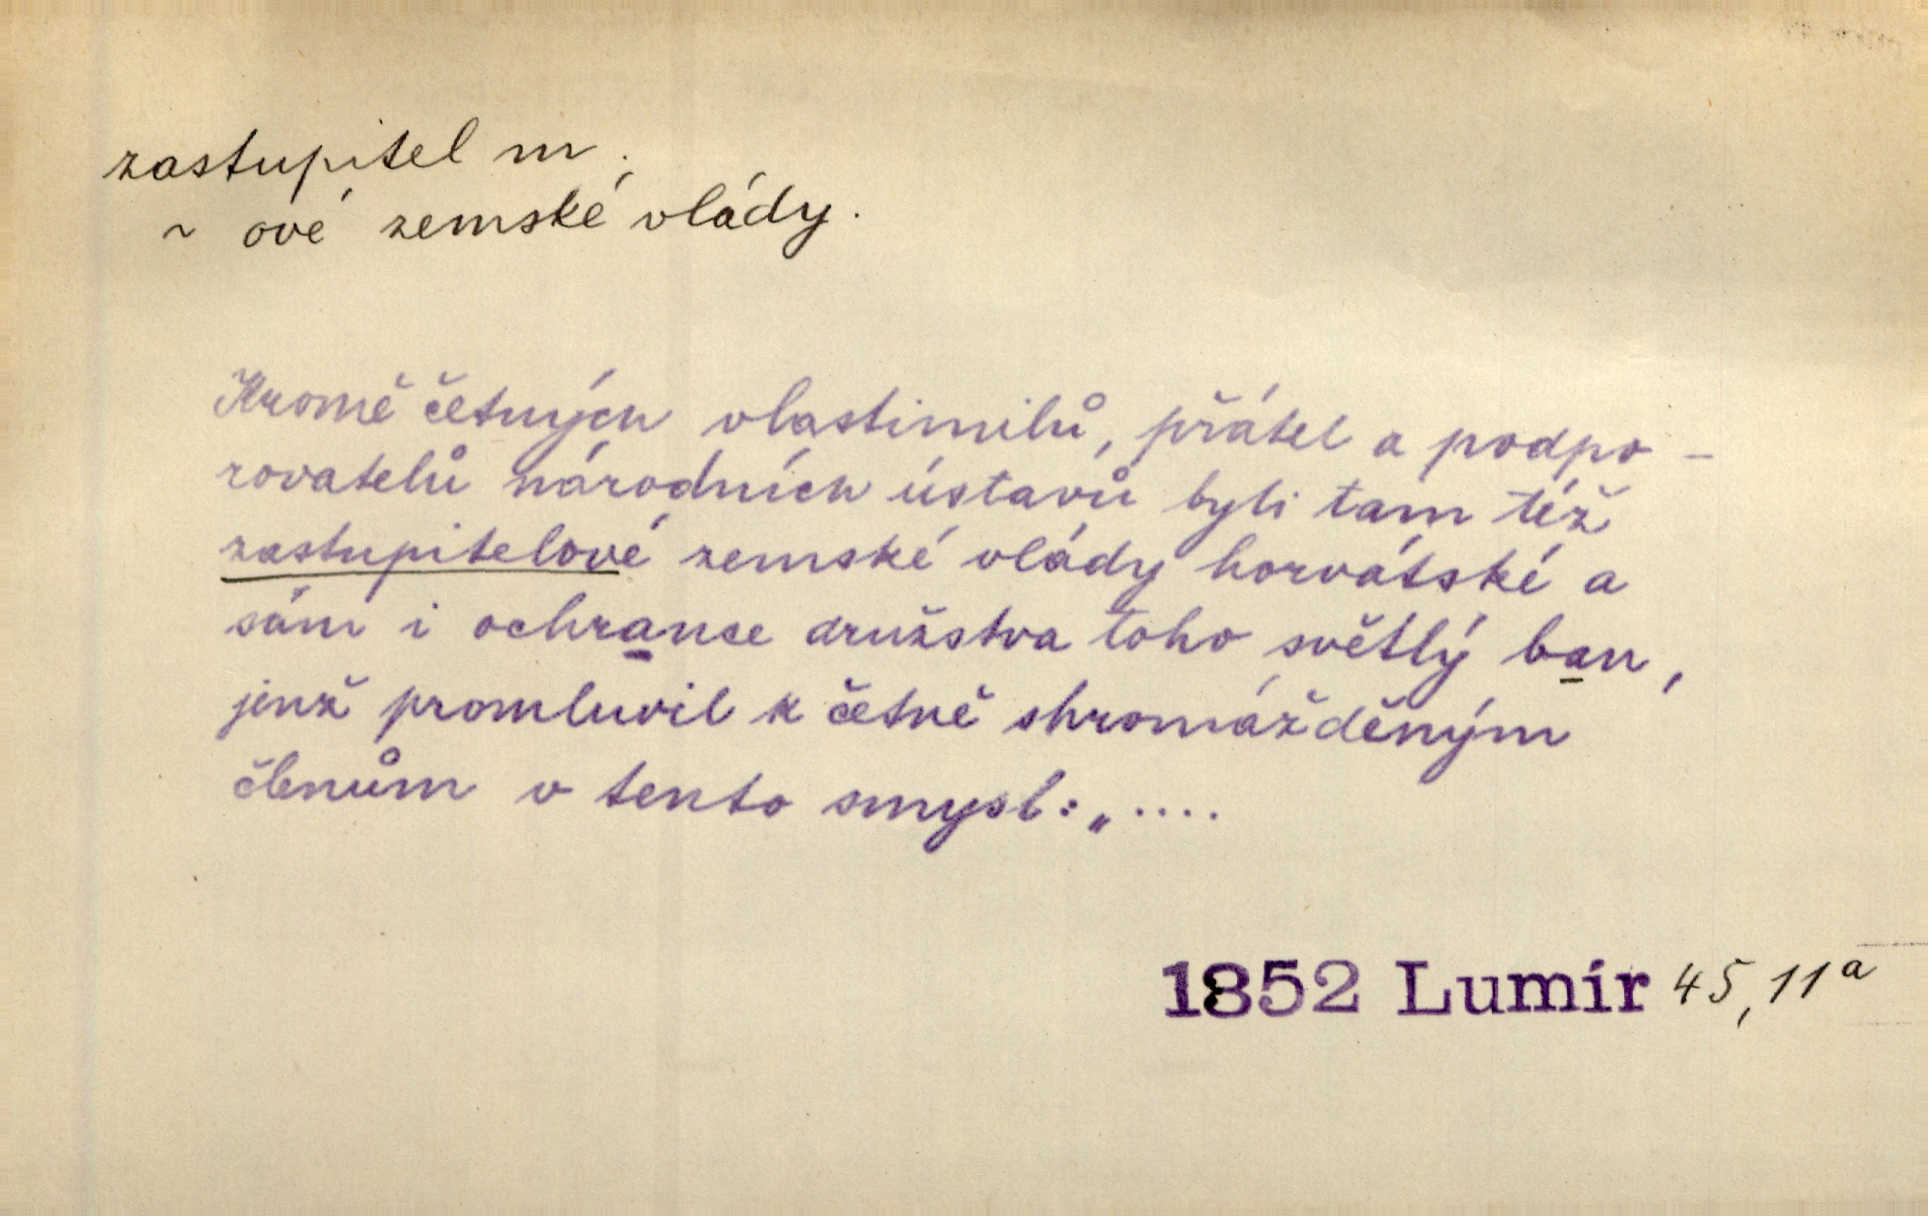 zastupitel m.
~ ové zemské vlády.
Kromě četných vlastimilů, přátel a podpo-
rovatelů národních ústavů byli tam též
zastupitelové zemské vlády horvátské a
sám i ochrance družstva toho světlý ban,
jenž promluvil k četně shromážděným
členům v tento smysl: „....
1852 Lumír 45, 11a